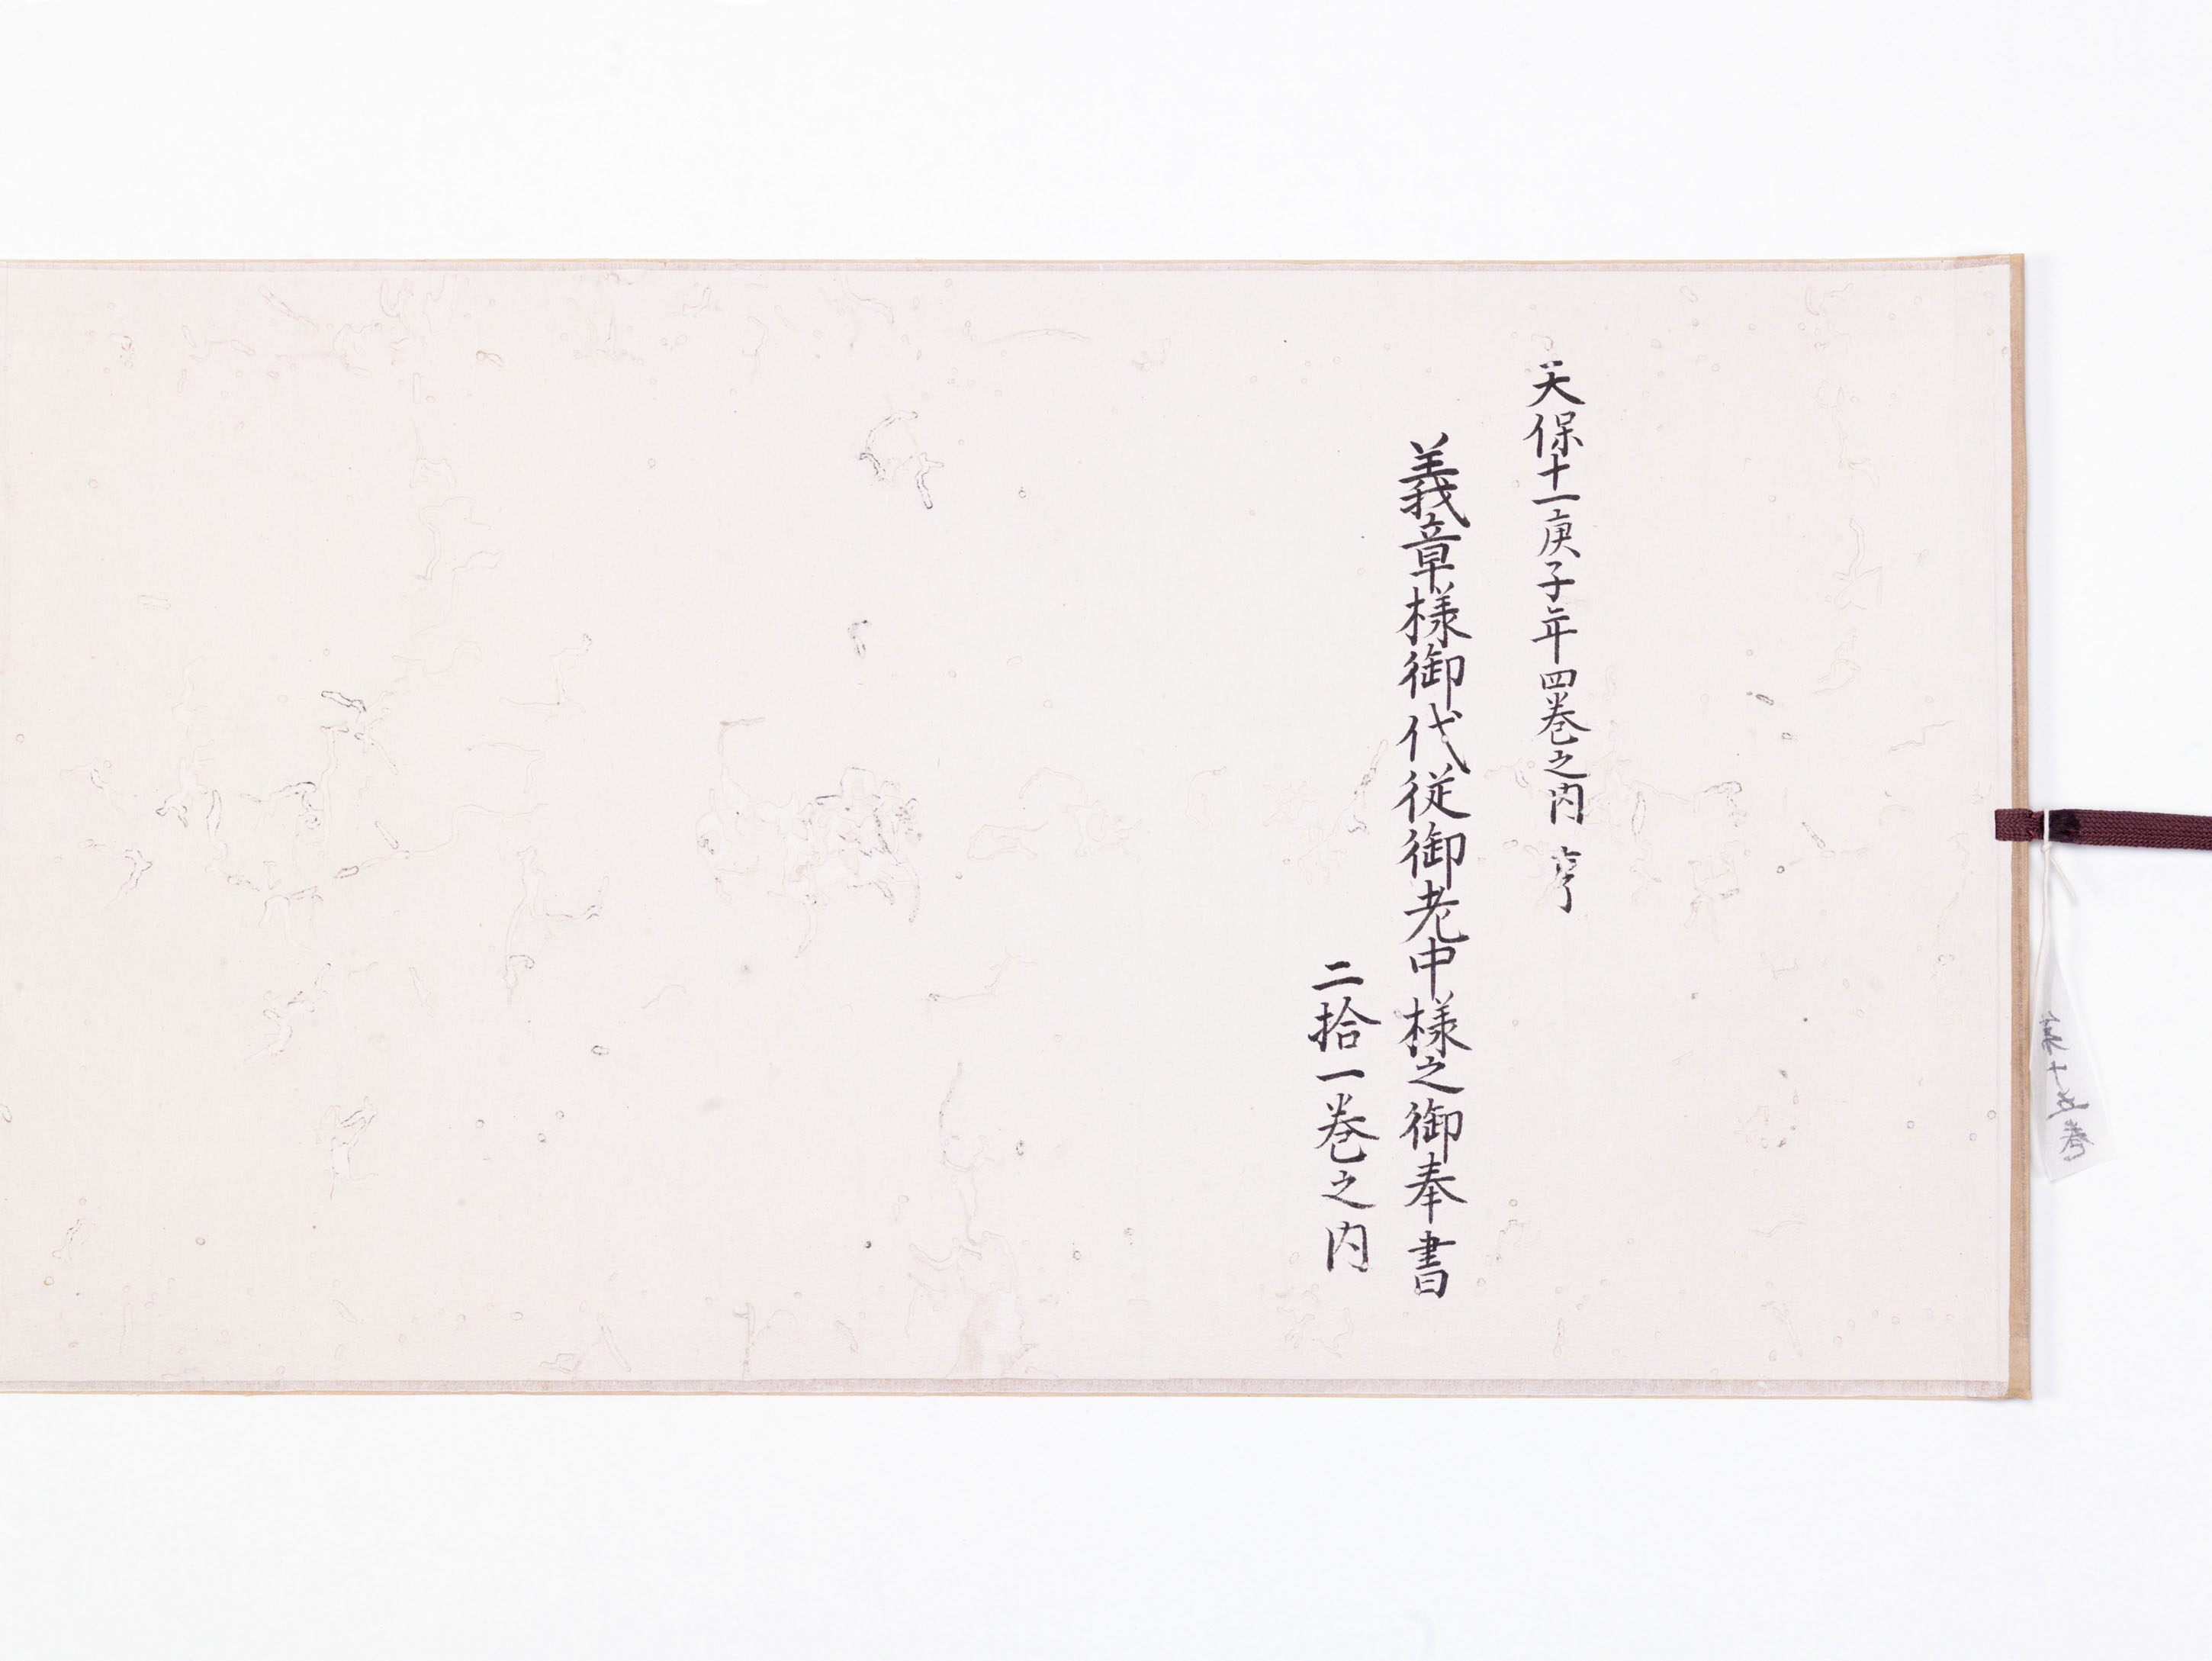 天保十一庚子年四巻之内 亨
義章様御代従御老中様之御奉書
二拾一巻之内
第十五巻